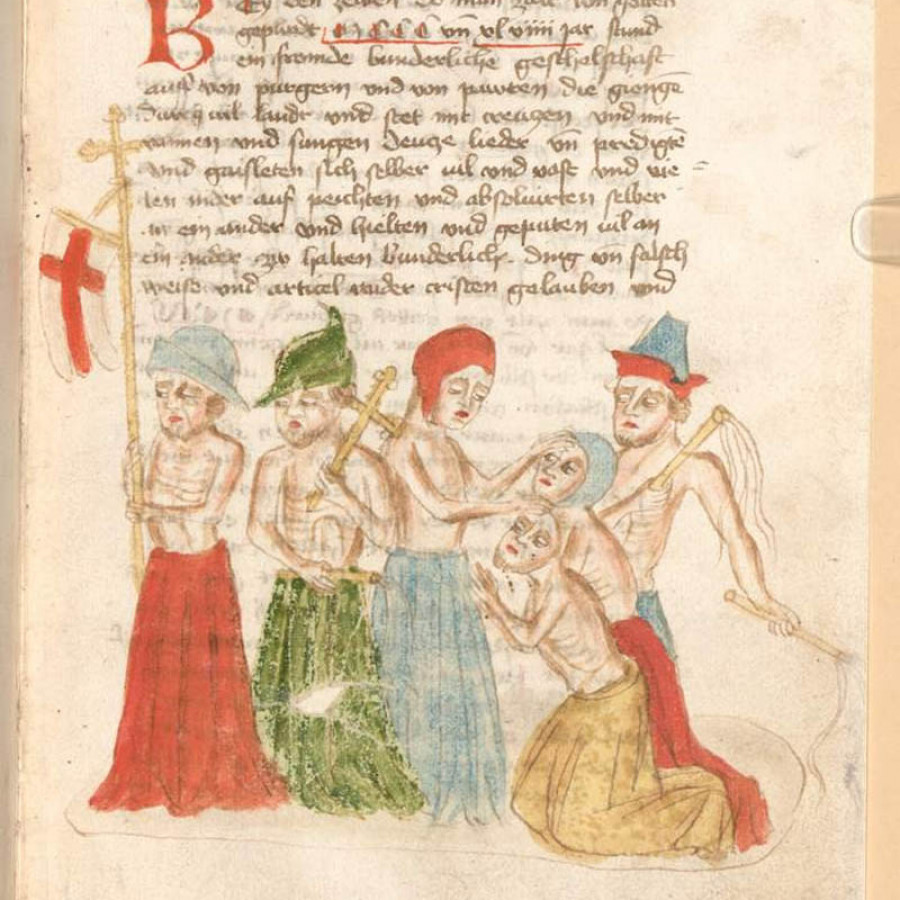 BEy den zeiten do man zalt von gottes
gepurdt M CCC vñ xl viiii jar stund
ein fromde bunderliche geschelschaft
auff von purgern vnd von pawren die gienge
durch vil landt vnd stet mit creuczen vnd mit
vannen vnd sungen deucze lieder vñ predigte
vnd gaisleten sich selber vil vnd vast vnd vie
len nider auf peichten vnd absoluirten selber
ie ein ander vnd hielten vnd geputen vil an
ein ander zu halten bunderlich. ding von falsch
weise vnd artickel wider cristen gelauben vnd